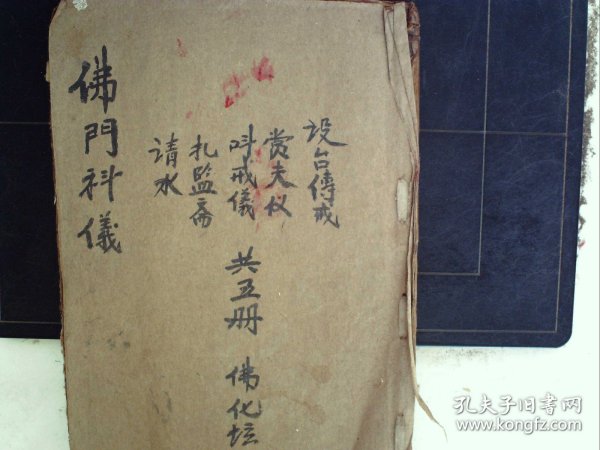 设台傳戒
赏夫仪
呌戒儀
扎監斋
请水
共五册
佛化坛
佛門科儀
孔夫子旧书网
www.kongfz.com